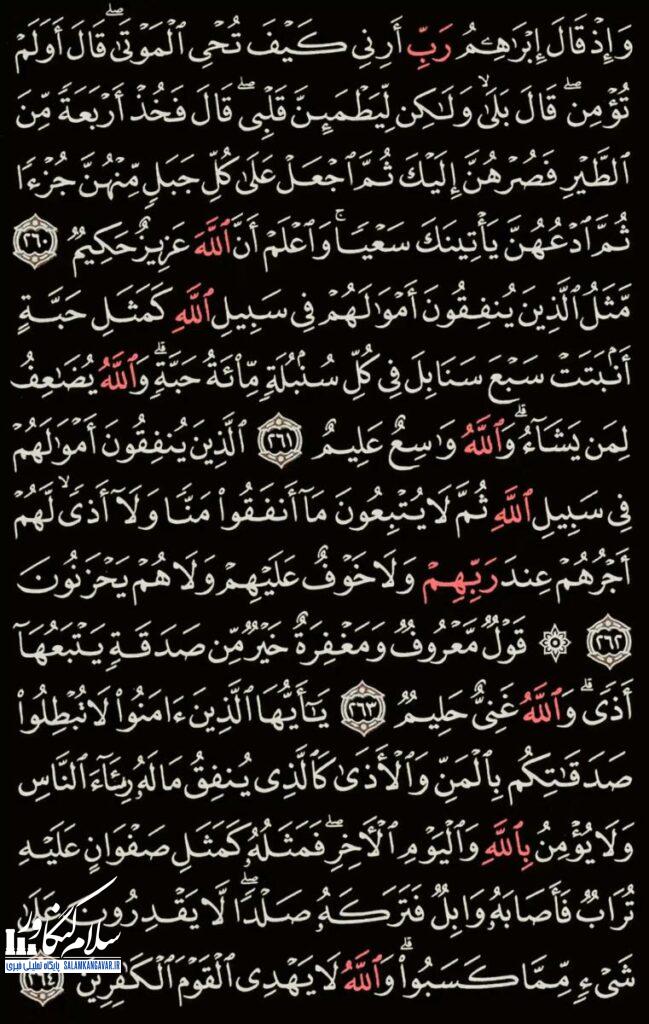 وَإِذْ قَالَ إِبْرَٰهِـۧمُ رَبِّ أَرِنِى كَيْفَ تُحْىِ ٱلْمَوْتَىٰ ۖ قَالَ أَوَلَمْ
تُؤْمِن ۖ قَالَ بَلَىٰ وَلَـٰكِن لِّيَطْمَئِنَّ قَلْبِى ۖ قَالَ فَخُذْ أَرْبَعَةً مِّنَ
ٱلطَّيْرِ فَصُرْهُنَّ إِلَيْكَ ثُمَّ ٱجْعَلْ عَلَىٰ كُلِّ جَبَلٍ مِّنْهُنَّ جُزْءًا
ثُمَّ ٱدْعُهُنَّ يَأْتِينَكَ سَعْيًا ۚ وَٱعْلَمْ أَنَّ ٱللَّهَ عَزِيزٌ حَكِيمٌ ٢٦٠
مَّثَلُ ٱلَّذِينَ يُنفِقُونَ أَمْوَٰلَهُمْ فِى سَبِيلِ ٱللَّهِ كَمَثَلِ حَبَّةٍ
أَنۢبَتَتْ سَبْعَ سَنَابِلَ فِى كُلِّ سُنۢبُلَةٍ مِّا۟ئَةُ حَبَّةٍ ۗ وَٱللَّهُ يُضَـٰعِفُ
لِمَن يَشَآءُ ۗ وَٱللَّهُ وَٰسِعٌ عَلِيمٌ ٢٦١ ٱلَّذِينَ يُنفِقُونَ أَمْوَٰلَهُمْ
فِى سَبِيلِ ٱللَّهِ ثُمَّ لَا يُتْبِعُونَ مَآ أَنفَقُوا۟ مَنًّا وَلَآ أَذًى ۙ لَّهُمْ
أَجْرُهُمْ عِندَ رَبِّهِمْ وَلَا خَوْفٌ عَلَيْهِمْ وَلَا هُمْ يَحْزَنُونَ
٢٦٢ ۞ قَوْلٌ مَّعْرُوفٌ وَمَغْفِرَةٌ خَيْرٌ مِّن صَدَقَةٍ يَتْبَعُهَآ
أَذًى ۗ وَٱللَّهُ غَنِىٌّ حَلِيمٌ ٢٦٣ يَـٰٓأَيُّهَا ٱلَّذِينَ ءَامَنُوا۟ لَا تُبْطِلُوا۟
صَدَقَـٰتِكُم بِٱلْمَنِّ وَٱلْأَذَىٰ كَٱلَّذِى يُنفِقُ مَالَهُۥ رِئَآءَ ٱلنَّاسِ
وَلَا يُؤْمِنُ بِٱللَّهِ وَٱلْيَوْمِ ٱلْـَٔاخِرِ ۖ فَمَثَلُهُۥ كَمَثَلِ صَفْوَانٍ عَلَيْهِ
تُرَابٌ فَأَصَابَهُۥ وَابِلٌ فَتَرَكَهُۥ صَلْدًا ۖ لَّا يَقْدِرُونَ عَلَىٰ
شَىْءٍ مِّمَّا كَسَبُوا۟ ۗ وَٱللَّهُ لَا يَهْدِى ٱلْقَوْمَ ٱلْكَـٰفِرِينَ ٢٦٤
سلام کنگاور
پایگاه تحلیلی خبری SALAMKANGAVAR.IR